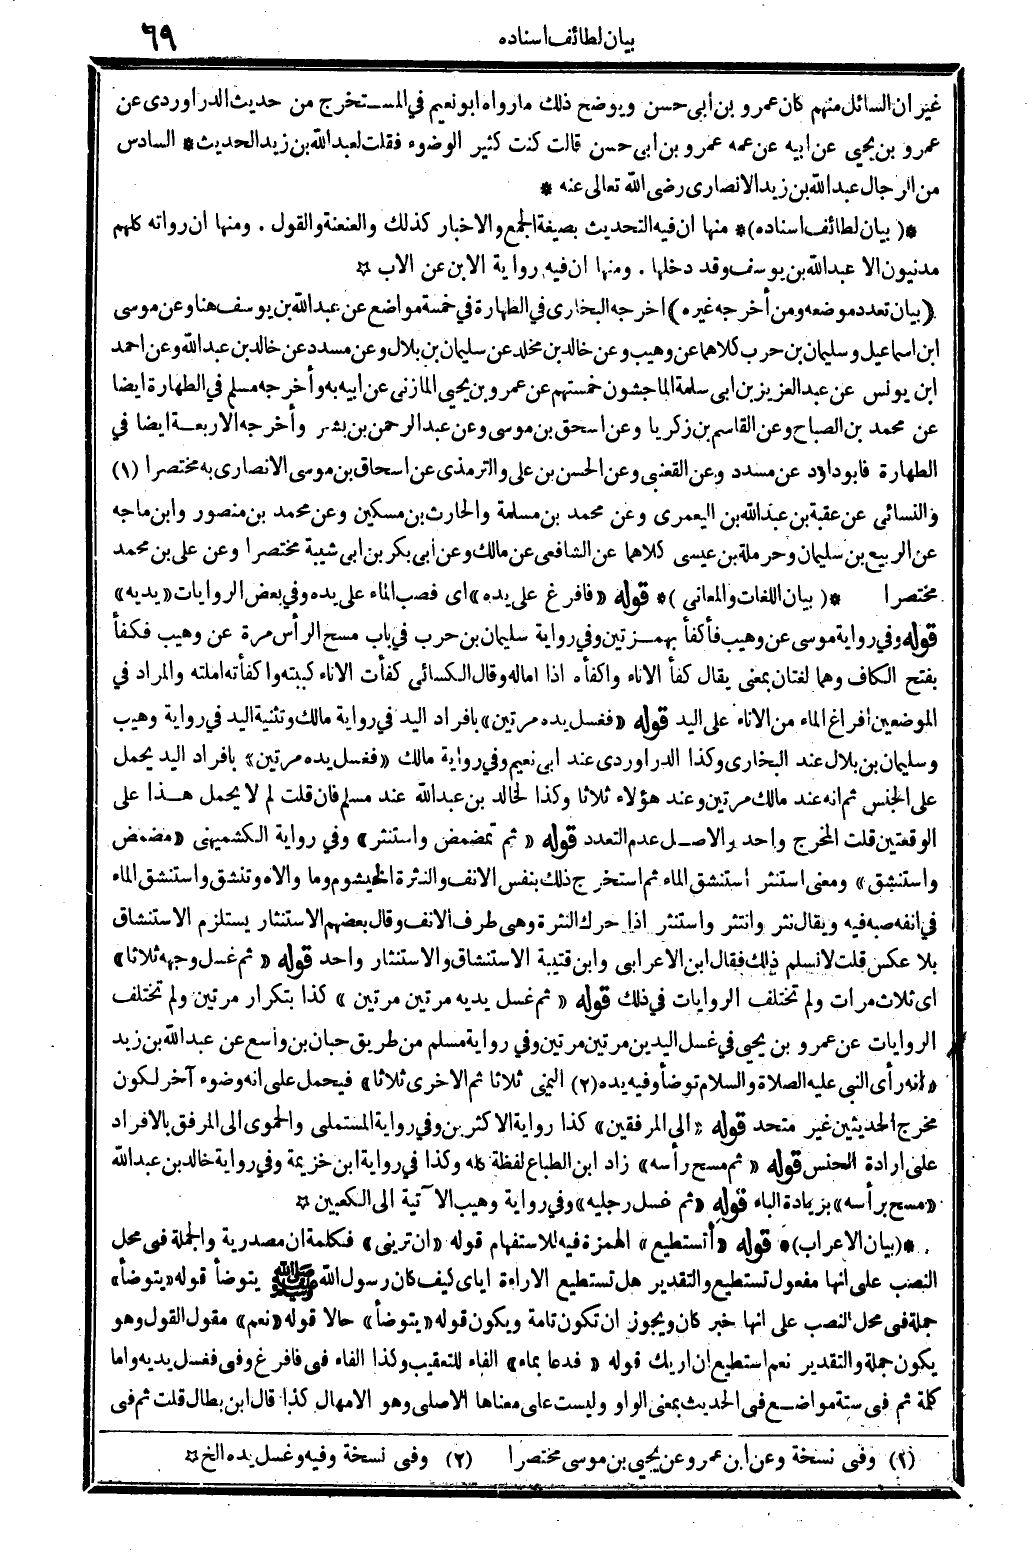 بيان لطائف اسناده ٦٩
غير ان السائل منهم كان عمرو بن أبى حسن ويوضح ذلك مارواه ابو نعيم في المستخرج من حديث الدراوردى عن
عمرو بن يحيى عن ابيه عن عمه عمرو بن ابى حسن قالت كنت كثير الوضوء فقلت لعبد الله بن زيد الحديث * السادس
من الرجال عبد الله بن زيد الانصارى رضى الله تعالى عنه *
*( بيان لطائف اسناده)* منها ان فيه التحديث بصيغة الجمع والاخبار كذلك والعنعنة والقول . ومنها ان رواته كلهم
مدنيون الا عبد الله بن يوسف وقد دخلها . ومنها ان فيه رواية الابن عن الاب ☆
(بيان تعدد موضعه ومن أخرجه غيره) اخرجه البخارى في الطهارة في خمسة مواضع عن عبد الله بن يوسف هنا وعن موسى
ابن اسماعيل وسليمان بن حرب كلاهما عن وهيب وعن خالد بن مخلد عن سليمان بن بلال وعن مسدد عن خالد بن عبد الله وعن احمد
ابن يونس عن عبد العزيز بن ابى سلمة الماجشون خمستهم عن عمرو بن يحيى المازنى عن ابيه به وأخرجه مسلم في الطهارة ايضا
عن محمد بن الصباح وعن القاسم بن زكريا وعن اسحق بن موسى وعن عبد الرحمن بن بشر وأخرجه الاربعة ايضا في
الطهارة فابو داود عن مسدد وعن القعنبى وعن الحسن بن على والترمذى عن اسحاق بن موسى الانصارى به مختصرا (١)
والنسائى عن عقبة بن عبد الله بن اليعمرى وعن محمد بن مسلمة والحارث بن مسكين وعن محمد بن منصور وابن ماجه
عن الربيع بن سليمان وحرملة بن عيسى كلاهما عن الشافعى عن مالك وعن أبى بكر بن ابى شيبة مختصرا وعن على بن محمد
مختصرا *( بيان اللغات والمعانى )* قوله «فافرغ على يده» اى فصب الماء على يده وفي بعض الروايات «يديه»
قوله وفي رواية موسى عن وهيب فأكفأ بهمزتين وفي رواية سليمان بن حرب في باب مسح الرأس مرة عن وهيب فكفأ
بفتح الكاف وهما لغتان بمعنى يقال كفأ الاناء واكفأه اذا اماله وقال الكسائى كفأت الاناء كببته واكفأته املته والمراد في
الموضعين افراغ الماء من الاناء على اليد قوله «فغسل يده مرتين» بافراد اليد في رواية مالك وتثنية اليد في رواية وهيب
وسليمان بن بلال عند البخارى وكذا الدراوردى عند ابى نعيم وفي رواية مالك «فغسل يده مرتين» بافراد اليد يحمل
على الجنس ثم انه عند مالك مرتين وعند هؤلاء ثلاثا وكذا لخالد بن عبد الله عند مسلم فان قلت لم لا يحمل هذا على
الوقعتين قلت المخرج واحد والاصل عدم التعدد قوله « ثم تمضمض واستنثر» وفي رواية الكشميهنى «مضمض
واستنشق» ومعنى استنثر استنشق الماء ثم استخرج ذلك بنفس الانف والنثرة الخيشوم وما والاه وتنشق واستنشق الماء
في انفه صبه فيه ويقال نثر وانتثر واستنثر اذا حرك النثرة وهى طرف الانف وقال بعضهم الاستنثار يستلزم الاستنشاق
بلا عكس قلت لا نسلم ذلك فقال ابن الاعرابى وابن قتيبة الاستنشاق والاستنثار واحد قوله « ثم غسل وجهه ثلاثا»
اى ثلاث مرات ولم تختلف الروايات في ذلك قوله « ثم غسل يديه مرتين مرتين » كذا بتكرار مرتين ولم تختلف
الروايات عن عمرو بن يحيى في غسل اليدين مرتين مرتين وفي رواية مسلم من طريق حبان بن واسع عن عبد الله بن زيد
«انه رأى النبي عليه الصلاة والسلام توضأ وفيه يده (٢) اليمنى ثلاثا ثم الاخرى ثلاثا» فيحمل على انه وضوء آخر لكون
مخرج الحديثين غير متحد قوله «الى المرفقين» كذا رواية الاكثرين وفي رواية المستملى والحموى الى المرفق بالافراد
على ارادة الجنس قوله « ثم مسح رأسه» زاد ابن الطباع لفظة كله وكذا في رواية ابن خزيمة وفي رواية خالد بن عبد الله
«مسح برأسه» بزيادة الباء قوله «ثم غسل رجليه» وفي رواية وهيب الآتية الى الكعبين ☆
*(بيان الاعراب)* قوله «أتستطيع» الهمزة فيه للاستفهام قوله «ان ترينى» فكلمة ان مصدرية والجملة فى محل
النصب على انها مفعول تستطيع والتقدير هل تستطيع الاراءة اياى كيف كان رسول الله ﷺ يتوضأ قوله «يتوضأ»
جملة فى محل النصب على انها خبر كان ويجوز ان تكون تامة ويكون قوله «يتوضأ» حالا قوله «نعم» مقول القول وهو
يكون جملة والتقدير نعم استطيع ان اريك قوله « فدعا بماء» الفاء للتعقيب وكذا الفاء فى فافرغ وفى فغسل يديه واما
كلمة ثم فى ستة مواضع فى الحديث بمعنى الواو وليست على معناها الاصلى وهو الامهال كذا قال ابن بطال قلت ثم فى
(١) وفى نسخة وعن ابن عمرو عن يحيى بن موسى مختصرا (٢) وفى نسخة وفيه وغسل يده الخ ☆